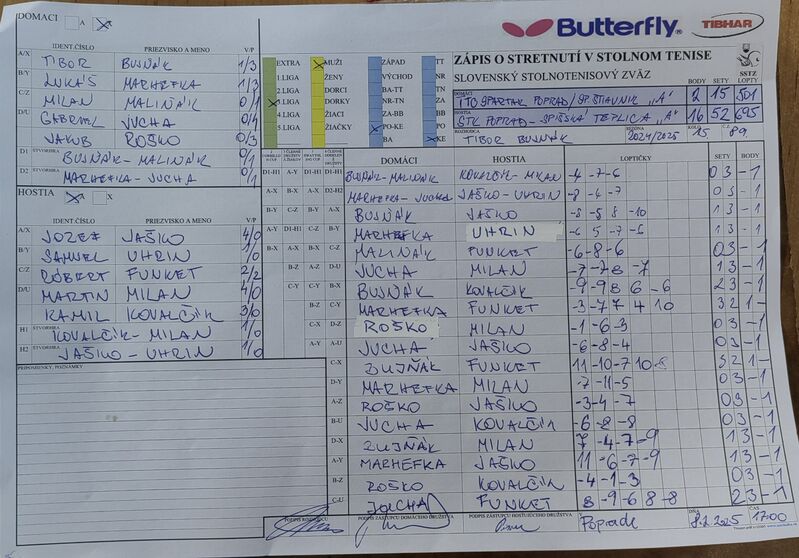 DOMACI A X
Butterfly TIBHAR
IDENT.ČÍSLO PRIEZVISKO A MENO V/P
A/X TIBOR BUJŇÁK 1/3
B/Y LUKÁŠ MARHEFKA 1/3
C/Z MILAN MALIŇÁK 0/1
D/U GABRIEL JUCHA 0/4
JAKUB ROŠKO 0/3
D1 ŠTVORHRA BUJŇÁK - MALIŇÁK 0/1
D2 ŠTVORHRA MARHEFKA - JUCHA 0/1
HOSTIA A X
IDENT.ČÍSLO PRIEZVISKO A MENO V/P
A/X JOZEF JAŠKO 4/0
B/Y SAMUEL UHRIN 1/0
C/Z RÓBERT FUNKET 2/2
D/U MARTIN MILAN 4/0
KAMIL KOVALČÍK 3/0
H1 ŠTVORHRA KOVALČÍK - MILAN 1/0
H2 ŠTVORHRA JAŠKO - UHRIN 1/0
PRIPOMIENKY, POZNÁMKY
EXTRA MUŽI ZÁPAD TT
1.LIGA ŽENY VÝCHOD NR
2.LIGA DORCI BA-TT TN
3.LIGA DORKY NR-TN ZA
4.LIGA ŽIACI ZA-BB BB
5.LIGA ŽIAČKY PO-KE PO
BA KE
ZÁPIS O STRETNUTÍ V STOLNOM TENISE
SLOVENSKÝ STOLNOTENISOVÝ ZVÄZ SSTZ
BODY SETY LOPTY
DOMÁCI STO SPARTAK POPRAD/SP. ŠTIAVNIK "A" 2 15 501
HOSTIA STK POPRAD - SPIŠSKÁ TEPLICA "A" 16 52 695
ROZHODCA TIBOR BUJŇÁK SEZÓNA 2024/2025 KOLO 15 Č. 89
DOMÁCI HOSTIA LOPTIČKY SETY BODY
D1-H1 A-Y D1-H1 D1-H1 BUJŇÁK - MALIŇÁK KOVALČÍK - MILAN -4 -7 -6 03 -1
A-X B-X A-X D2-H2 MARHEFKA - JUCHA JAŠKO - UHRIN -8 -4 -7 03 -1
B-Y C-Z B-Y A-X BUJŇÁK JAŠKO -8 -5 8 -10 13 -1
A-Y D1-H1 C-Z B-Y MARHEFKA UHRIN -6 5 -7 -6 13 -1
B-X A-X B-X C-Z MALIŇÁK FUNKET -6 -8 -6 03 -1
B-Z A-Z D-U JUCHA MILAN -7 -7 8 -7 13 -1
C-Y B-X BUJŇÁK KOVALČÍK -9 -9 8 6 -6 23 -1
B-Z C-Y MARHEFKA FUNKET -3 -7 7 4 10 32 1 -
C-X D-Z ROŠKO MILAN -1 -6 -3 03 -1
A-Y A-U JUCHA JAŠKO -6 -8 -4 03 -1
C-X BUJŇÁK FUNKET 11 -10 -7 10 8 32 1 -
D-Y MARHEFKA MILAN -7 -11 -5 03 -1
A-Z ROŠKO JAŠKO -3 -4 -7 03 -1
B-U JUCHA KOVALČÍK -6 -8 -8 03 -1
D-X BUJŇÁK MILAN 7 -4 -7 -9 13 -1
A-Y MARHEFKA JAŠKO 11 -6 -7 -9 13 -1
B-Z ROŠKO KOVALČÍK -4 -1 -3 03 -1
C-U JUCHA FUNKET 8 -9 -6 8 -8 23 -1
PODPIS ROZHODCU PODPIS ZÁSTUPCU DOMÁCEHO DRUŽSTVA PODPIS ZÁSTUPCU HOSŤUJÚCEHO DRUŽSTVA V Poprade DŇA 8.2.2025 ČAS 17:00